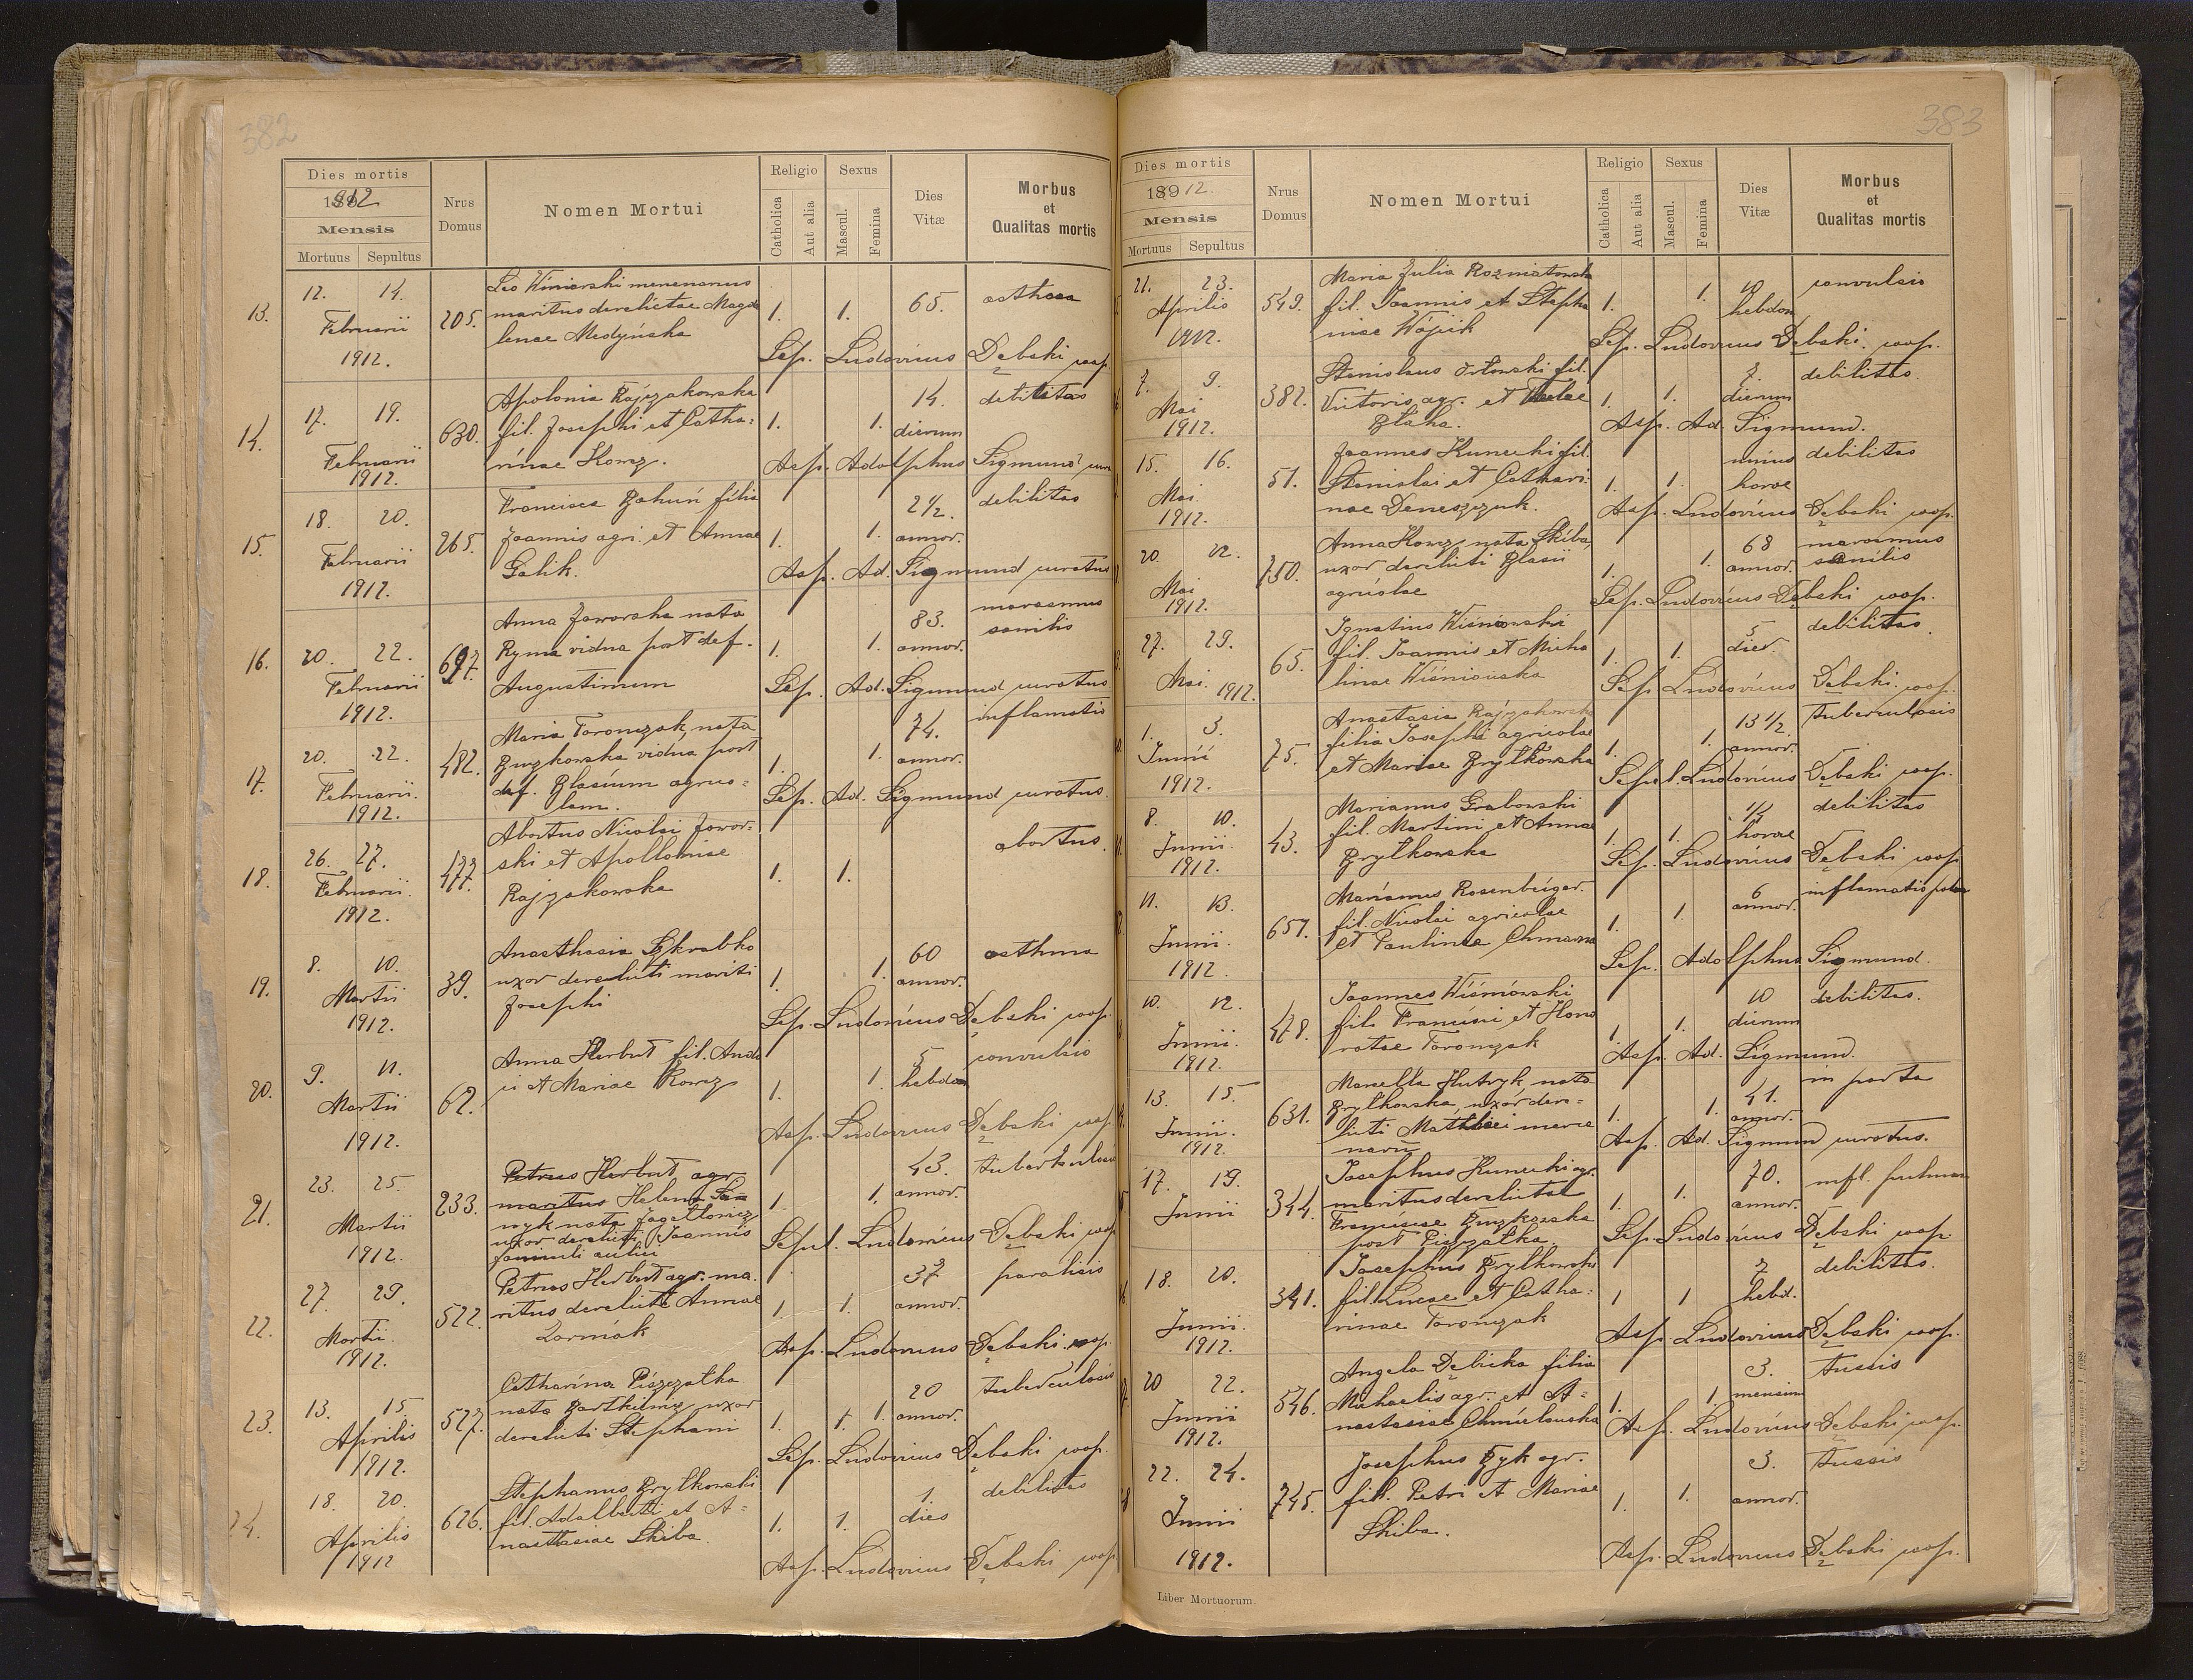 382
Dies mortis
1912
Mensis
Mortuus Sepultus
Nrus Domus
Nomen Mortui
Religio
Catholica
Aut alia
Sexus
Mascul.
Femina
Dies Vitæ
Morbus et Qualitas mortis
13. 12. 14. Februarii 1912. 205.
Leo Winiarski
maritus derelictae Magda
lenae Medyńska
1. 1. 65.
Sep. Ludovicus Dębski coop.
14. 17. 19. Februarii 1912. 630.
Apolonia Rajzakowska
fil. Josephi et Catha:
rinae Korcz.
1. 1. 14. dierum debilitas
Asp. Adolphus Sigmund
15. 18. 20. Februarii 1912. 265.
Francisca Bahuń filia
Joannis agri. et Annae
Galik.
1. 1. 2 1/2. annor. debilitas
Asp. Ad. Sigmund curatus
16. 20. 22. Februarii 1912. 697.
Anna Jaworska nata
Ryma vidua post def.
Augustinum
1. 1. 83. annor. marasmus senilis
Sep. Ad. Sigmund curatus
17. 20. 22. Februarii. 1912. 482.
Maria Toronczak, nata
vidua post
def. Blasium agrico=
lam.
1. 1. 74. annor. inflamatio
Sep. Ad. Sigmund curatus.
18. 26. 27. Februarii. 1912. 477.
Abortus Nicolai Jawor=
ski et Apolloniae
Rajzakowska
1. 1. abortus.
19. 8. 10. Martii 1912. 39.
Anasthasia Skrabko
uxor derelicti mariti
Josephi
1. 1. 60 annor. asthma
Sep. Ludovicus Dębski coop.
20. 9. 11. Martii 1912. 62.
Anna Herbut fil. Andr
ei et Mariae Korcz
1. 1. 5 hebdom convulsio
Asp. Ludovicus Dębski coop
21. 23. 25. Martii 1912. 233.
Petrus Herbut agr.
maritus Helena
nata Jagellowicz
uxor derelicti Joannis
famuli aulici
1. 1. 43. annor.
Sepul. Ludovicus Dębski coop
22. 27. 29. Martii. 1912. 522.
Petrus Herbut agr. ma.
ritus derelictae Annae
Zarmak
1. 1. 37 annor. paralisis
Asp. Ludovicus Dębski coop
23. 13. 15. Aprilis 1912. 527.
Catharina Piszczatka
nata uxor
derelicti Stephani
1. 1. 1. 20 annor. tuberculosis
Sep. Ludovicus Dębski coop.
24. 18. 20. Aprilis 1912 626.
Stephanus Brytkowski
fil. Adalberti et A=
nasthasiae Skiba.
1. 1. 1. dies debilitas
Asp. Ludovicus Dębski coop
383
Dies mortis
189 12.
Mensis
Mortuus Sepultus
Nrus Domus
Nomen Mortui
Religio
Catholica
Aut alia
Sexus
Mascul.
Femina
Dies Vitæ
Morbus et Qualitas mortis
21. 23. Aprilis 1912. 549.
Maria Julia Rozmiatowska
fil. Joannis et Stepha
niae Wójcik
1. 1. hebdom convulsio
Sep. Ludovicus Dębski. coop.
7. 9. Mai 1912. 382.
Stanislaus Orłowski fil.
Victoris agr. et
Blaha.
1. 1. 7. dierum debilitas.
Asp. Ad. Sigmund.
15. 16. Mai. 1912. 51.
Joannes Kunecki fil.
Stanislai et Cathari:
nae Deneszczuk.
1. 1. unius horae debilitas
Asp. Ludovicus Dębski coop.
20. 22. Mai 1912. 750.
Anna Korcz nata Skiba,
uxor derelicti Blasii
agricolae
1. 1. 68 annor. marasmus senilis
Sep. Ludovicus Dębski coop.
27. 29. Mai. 1912. 65.
Ignatius Wiśniowski
fil. Joannis et Micha
linae Wiśniowska
1. 1. 5 dier. debilitas.
Sep Ludovicus Dębski. coop.
1. 3. Junii 1912. 75.
Anastasia Rajzakowska
filia Josephi agricolae
et Mariae Brytkowska
1. 1. 13 1/2. annor. Tuberculosis
Sepul. Ludovicus Dębski coop.
8. 10. Junii 1912. 43.
Marianus Grabowski
fil. Martini et Annae
Brytkowska
1. 1. 1/2 horae debilitas
Sep. Ludovicus Dębski coop
11. 13. Junii. 1912. 657.
Marianus Rosenbeiger.
fil. Nicolai agricolae
et Paulinae Chmarna
1. 1. 6 annor. inflamatio
Sep. Adolphus Sigmund.
10. 12. Junii. 1912. 478.
Joannes Wiśniowski
fil. Francisci et Hono
ratae Toronczak
1. 1. 10 dierum debilitas.
Asp. Ad. Sigmund.
13. 15. Junii. 1912. 631.
Marcella Hutryk, nata
Brytkowska, uxor dere=
licti Mathaei merce
narii
1. 1. 41. annor. in partu
Asp. Ad. Sigmund curatus.
17. 19. Junii 344.
Josephus Kunecki agr.
maritus derelictae
Franciscae
post Piszczatka.
1. 1. 70. annor. infl. pulmon
Sep. Ludovicus Dębski coop
18. 20. Junii. 1912. 341.
Josephus Brytkowski
fil. Lucae et Catha:
rinae Toronczak
1 1 7 hebd. debilitas.
Asp. Ludovicus Dębski coop.
20 22. Junii 1912. 546.
Angela Dębicka filia
Michaelis agr. et A=
nastasiae Chmielowska
1. 1. 3. mensium tussis
Asp. Ludovicus Dębski coop.
22. 24. Junii 1912. 745.
Josephus Byk agr.
fil. Petri et Mariae
Skiba.
1. 1. 3. annor. tussis
Asp. Ludovicus Dębski coop.
Liber Mortuorum